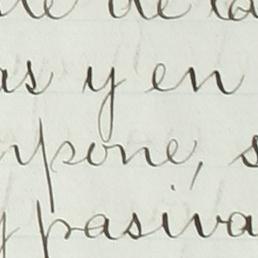 de la
as y en
pone, s
y pasiva